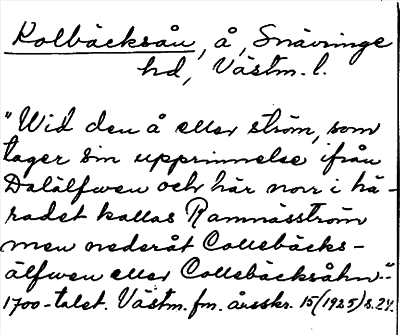 Kolbäcksån, å, Snävringe
hd, Västm. l.
"Wid den å eller ström, som
tager sin upprinnelse ifrån
Dalälfwen och här norr i hä-
radet kallas Ramnäsström
men nederåt Collebäcks-
älfwen eller Collebäcksåhn."
1700-talet. Västm. fm. årsskr. 15 (1925) s. 24.